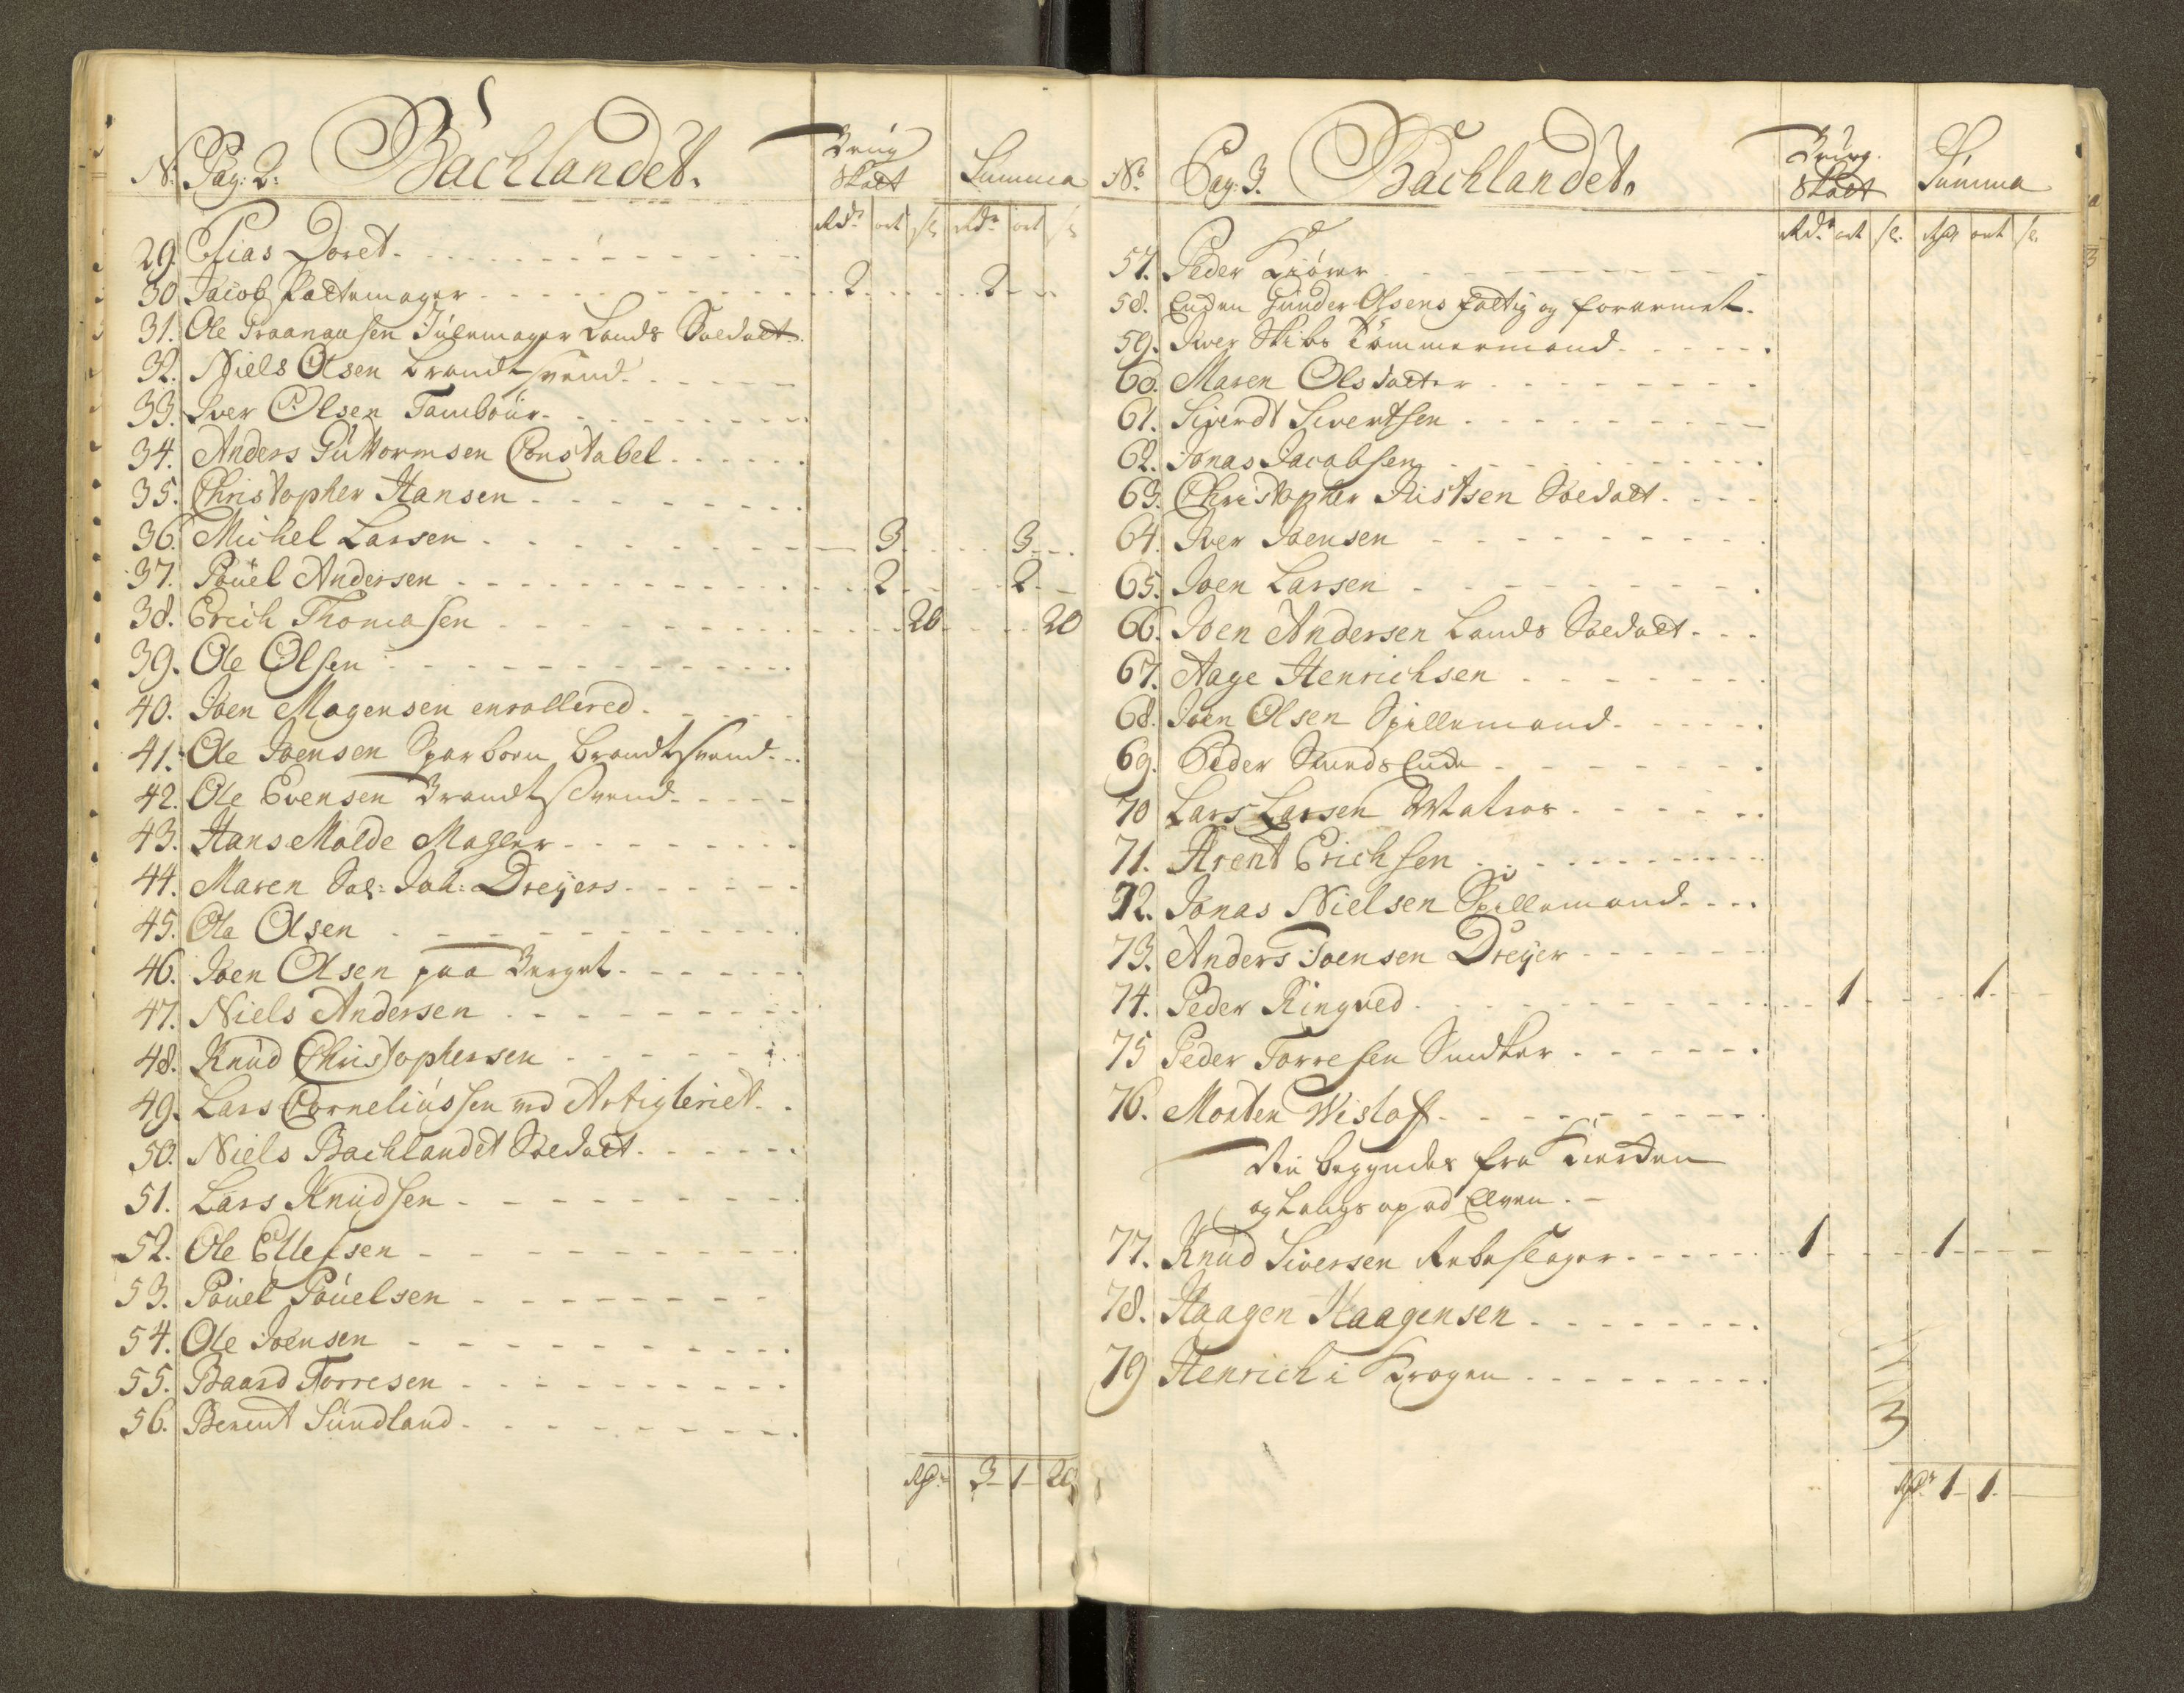 N. Pag: 2: Bachlandet. Krig Skatt Summa
Rdr ort sk Rdr ort sk
29. Elias Doret
30 Jacob Pottemager 2 2
31. Ole Graanaasen Juulemager Lands Soldatt
32. Niels Olsen Brandtsvend
33. Iver Olsen Tambour
34. Anders Guttormsen Constabel
35. Christopher Hansen
36. Michel Larsen 3 3
37. Pouel Andersen 2 2
38. Erich Thomasen 20 20
39. Ole Olsen
40. Joen Mogensen enrollered
41. Ole Joensen Sparboen Brandtsvend
42. Ole Evensen Brandtsvend
43. Hans Molde Mager
44. Maren Sal: Joh: Dreyers
45. Ole Olsen
46. Joen Olsen paa Berget
47. Niels Andersen
48. Knud Christophersen
49. Lars Corneliussen ved Artigleriet
50. Niels Bachlandet Soldatt
51. Lars Knudsen
52. Ole Ellefsen
53. Pouel Pouelsen
54. Ole Joensen
55. Baard Torresen
56. Berent Sundland
Rdr 3 1 20
No. Pag: 3. Bachlandet. Krig. Skatt Summa
Rdr ort sk. Rdr ort sk.
57. Peder Kiører
58. Enken Gunder Olsens fattig og forarmet.
59. Iver Skibs Tømmermand
60. Maren Olsdatter
61. Siverdt Sivertsen
62. Jonas Jacobsen
63. Christopher Ristsen Soldatt
64. Iver Joensen
65. Joen Larsen
66. Joen Andersen Lands Soldatt
67. Aage Henrichsen
68. Joen Olsen Spillemand
69. Peder Sundslude
70 Lars Larsen Matros
71. Arent Erichsen
72. Jonas Nielsen Spillemand
73. Anders Joensen Dreyer
74. Peder Ringved 1 1
75 Peder Torresen Snedker
76. Morten Wisloff
Nu begyndes fra Kierken
og Langs op ad Elven.
77. Knud Siversen Rebslager 1 1
78. Haagen Haagensen
79 Henrich i Krogen
Rdr 1 1